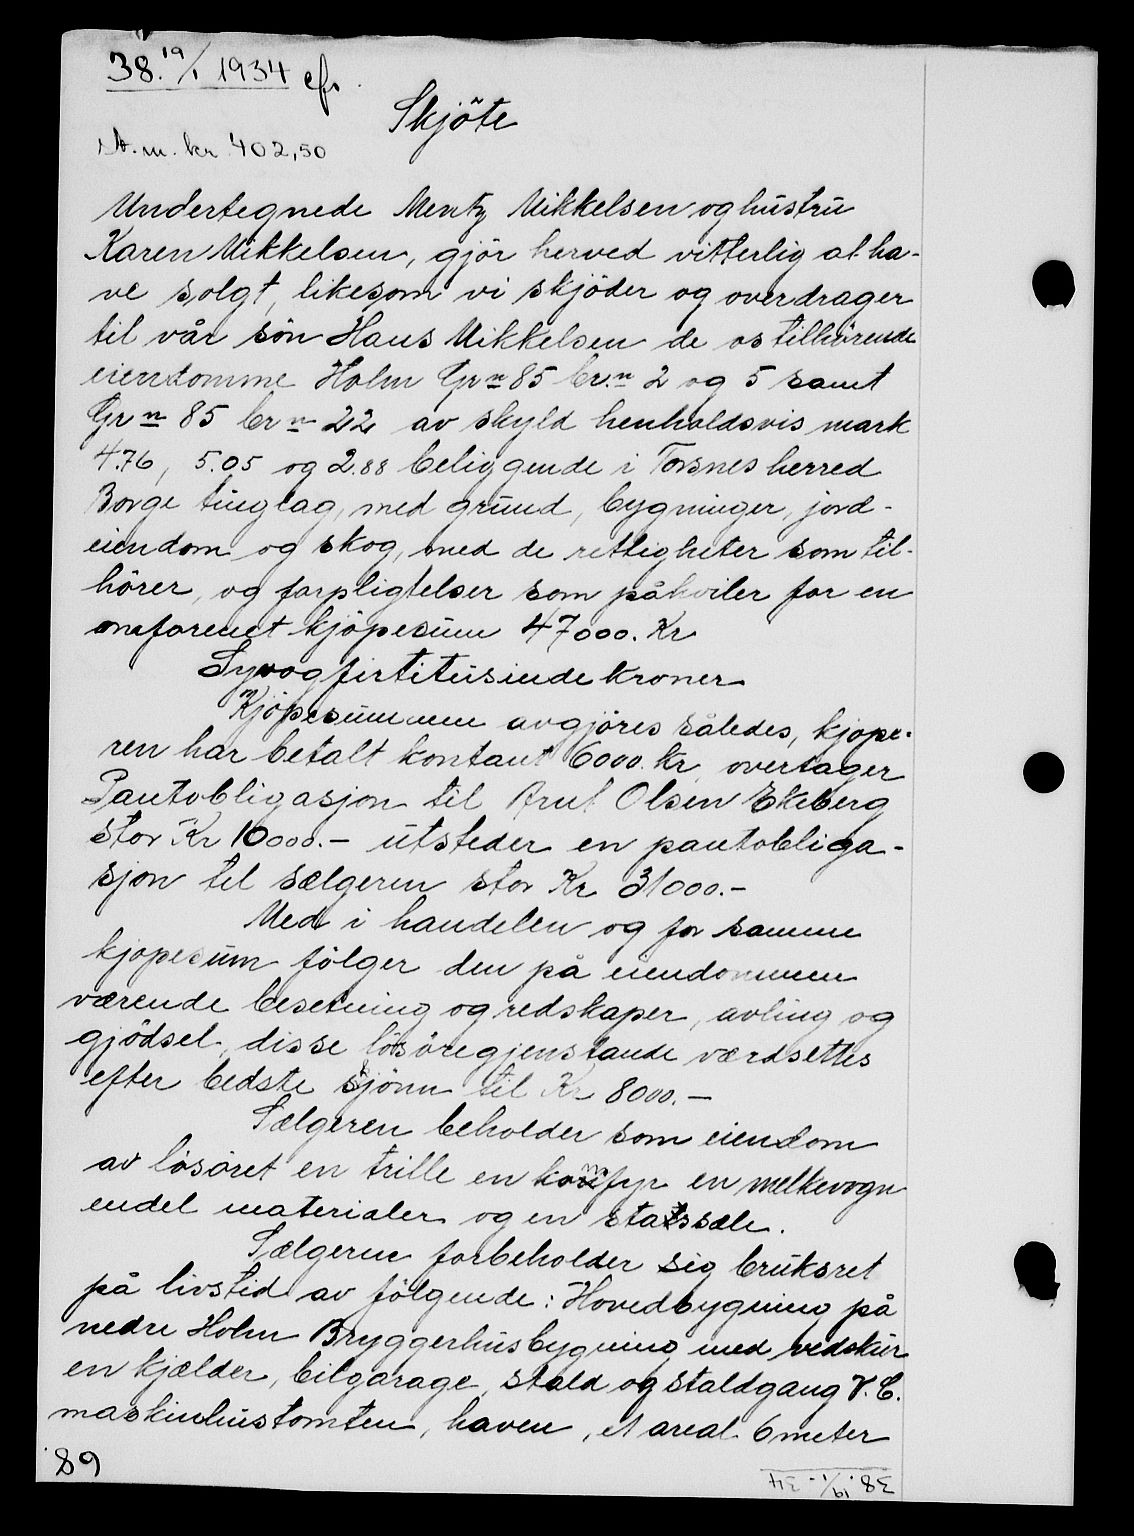 38. 19/1 1934 efs.
Skjöte
St. m. kr 402,50
Undertegnede Mentz Mikkelsen og hustru
Karen Mikkelsen, gjör herved vitterlig at ha-
ve solgt, likesom vi skjöder og overdrager
til vår sön Hans Mikkelsen de os tilhörende
eiendomme Holm Gr n 85 br. n 2 og 5 samt
Gr n 85 br n 22 av skyld henholdsvis mark
4.76, 5.05 og 2.88 beliggende i Torsnes herred
Borge tinglag, med grund, bygninger, jord-
eiendom og skog, med de rettigheter som til-
hörer, og forpligtelser som påhviler for en
omforenet kjöpesum 47000. Kr
Syvogfirtitusinde kroner
Kjöpesummen avgjöres således, kjöpe-
ren har betalt kontant 6000 kr, overtager
Pantobligasjon til Arnt Olsen Ekeberg
stor Kr 10000.- utsteder en pantobliga-
sjon til sælgeren stor Kr 31000.-
Med i handelen og for samme
kjöpesum fölger den på eiendommen
værende besetning og redskaper, avling og
gjödsel, disse lösöregjenstande værdsettes
efter bedste skjönn til Kr 8000.-
Sælgeren beholder som eiendom
av lösöret en trille en komfyr en melkevogn
endel materialer og en stassæle.
Sælgerne forbeholder sig bruksret
på livstid av fölgende: Hovedbygning på
nedre Holm Bryggerhusbygning med vedskur
en kjælder, bilgarage, stald og staldgang V.C.
maskinhustomten, haven, et areal 6 meter
89
38. 19/1 - 34